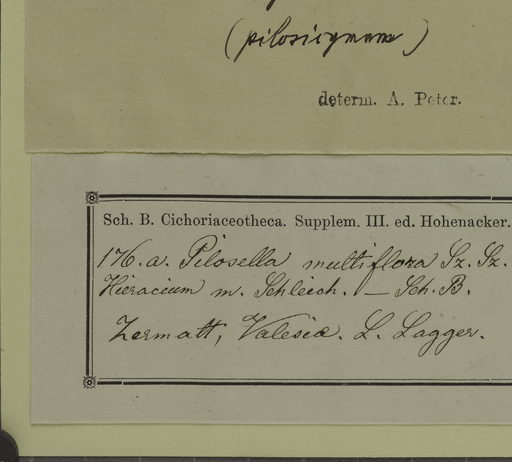 (pilosicynum)
determ. A. Peter.
Sch. B. Cichoriaceotheca. Supplem. III. ed. Hohenacker.
176. a. Pilosella multiflora Sz. Sz.
Hieracium m. Schleich. — Sch. B.
Zermatt, Valesia. L. Lagger.